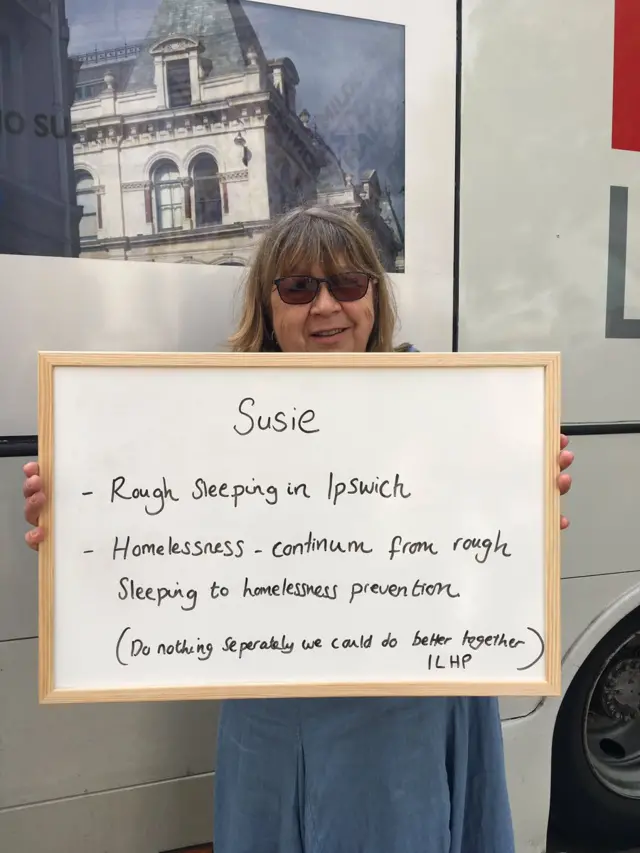 Susie
- Rough Sleeping in Ipswich
- Homelessness - continum from rough
Sleeping to homelessness prevention.
(Do nothing seperately we could do better together)
ILHP